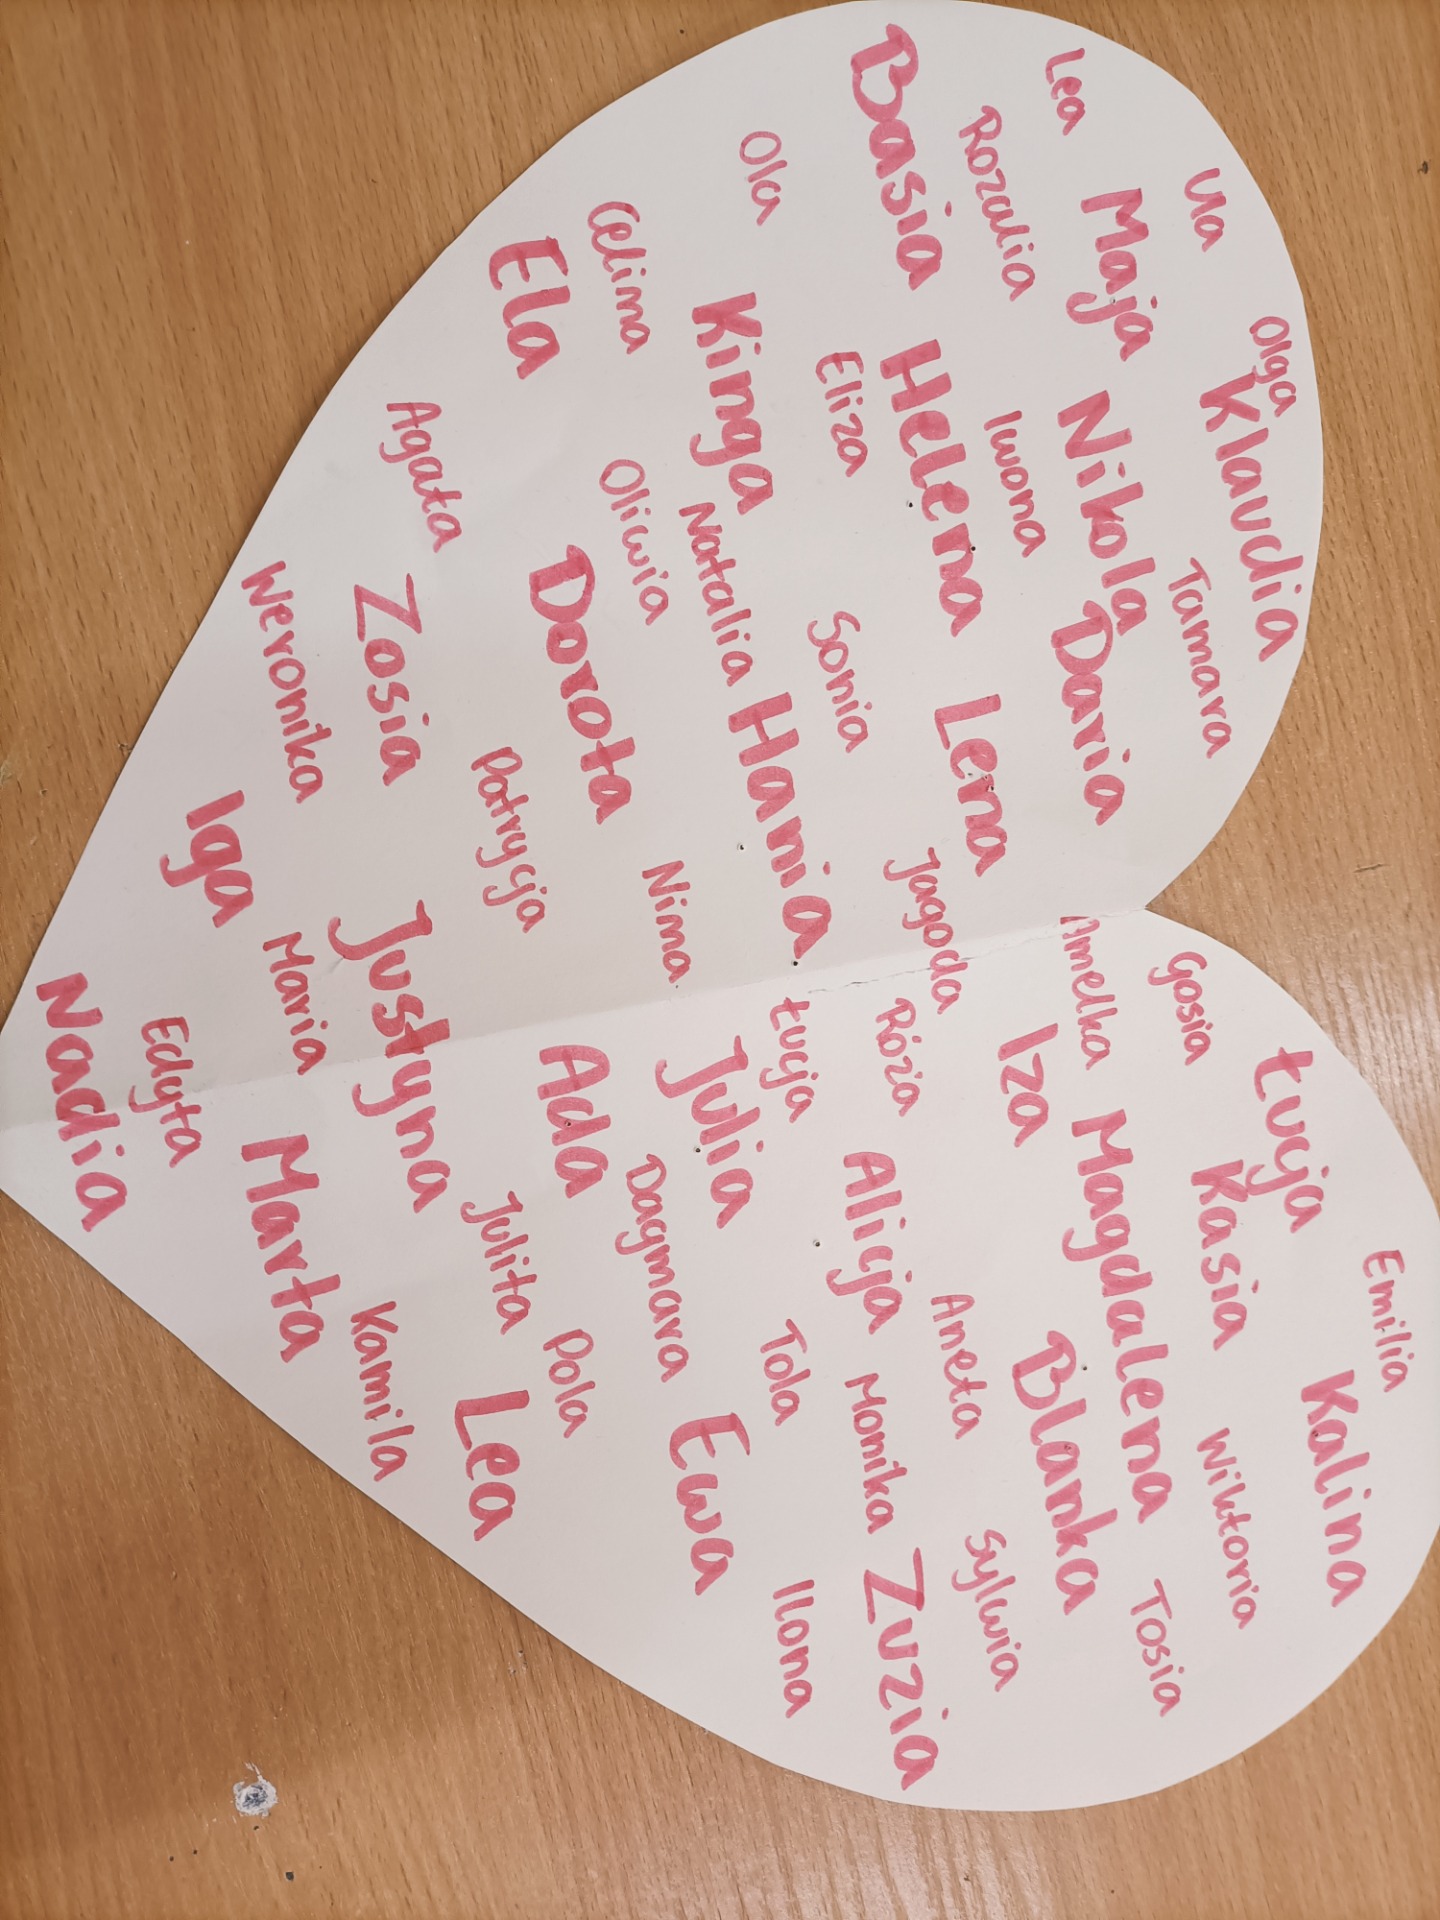 Lea
Ula
Olga
Rozalia
Maja
Klaudia
Basia
Iwona
Nikola
Tamara
Ola
Eliza
Helena
Daria
Celina
Kinga
Sonia
Lena
Ela
Oliwia
Natalia
Hania
Jagoda
Amelka
Gosia
Łucja
Emilia
Agata
Dorota
Nina
Łucja
Róża
Iza
Magdalena
Kasia
Kalina
Weronika
Zosia
Patrycja
Julia
Alicja
Aneta
Blanka
Wiktoria
Iga
Justyna
Ada
Dagmara
Tola
Monika
Sylwia
Tosia
Maria
Julita
Pola
Ewa
Ilona
Zuzia
Nadia
Edyta
Marta
Kamila
Lea